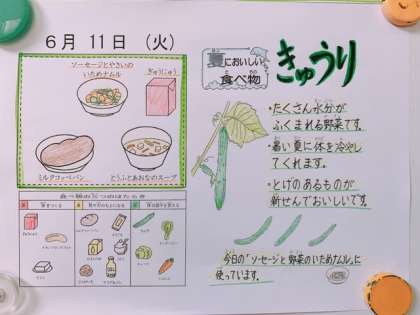 6月 11日 (火)
ソーセージとやさいの
いためナムル
ぎゅうにゅう
ミルクコッペパン
とうふとあおなのスープ
夏においしい
食べ物
きゅうり
・たくさん水分が
ふくまれる野菜です。
・暑い夏に体を冷やし
てくれます。
・とげのあるものが
新せんでおいしいです。
今日の「ソーセージと野菜のいためナムル」に
使っています。